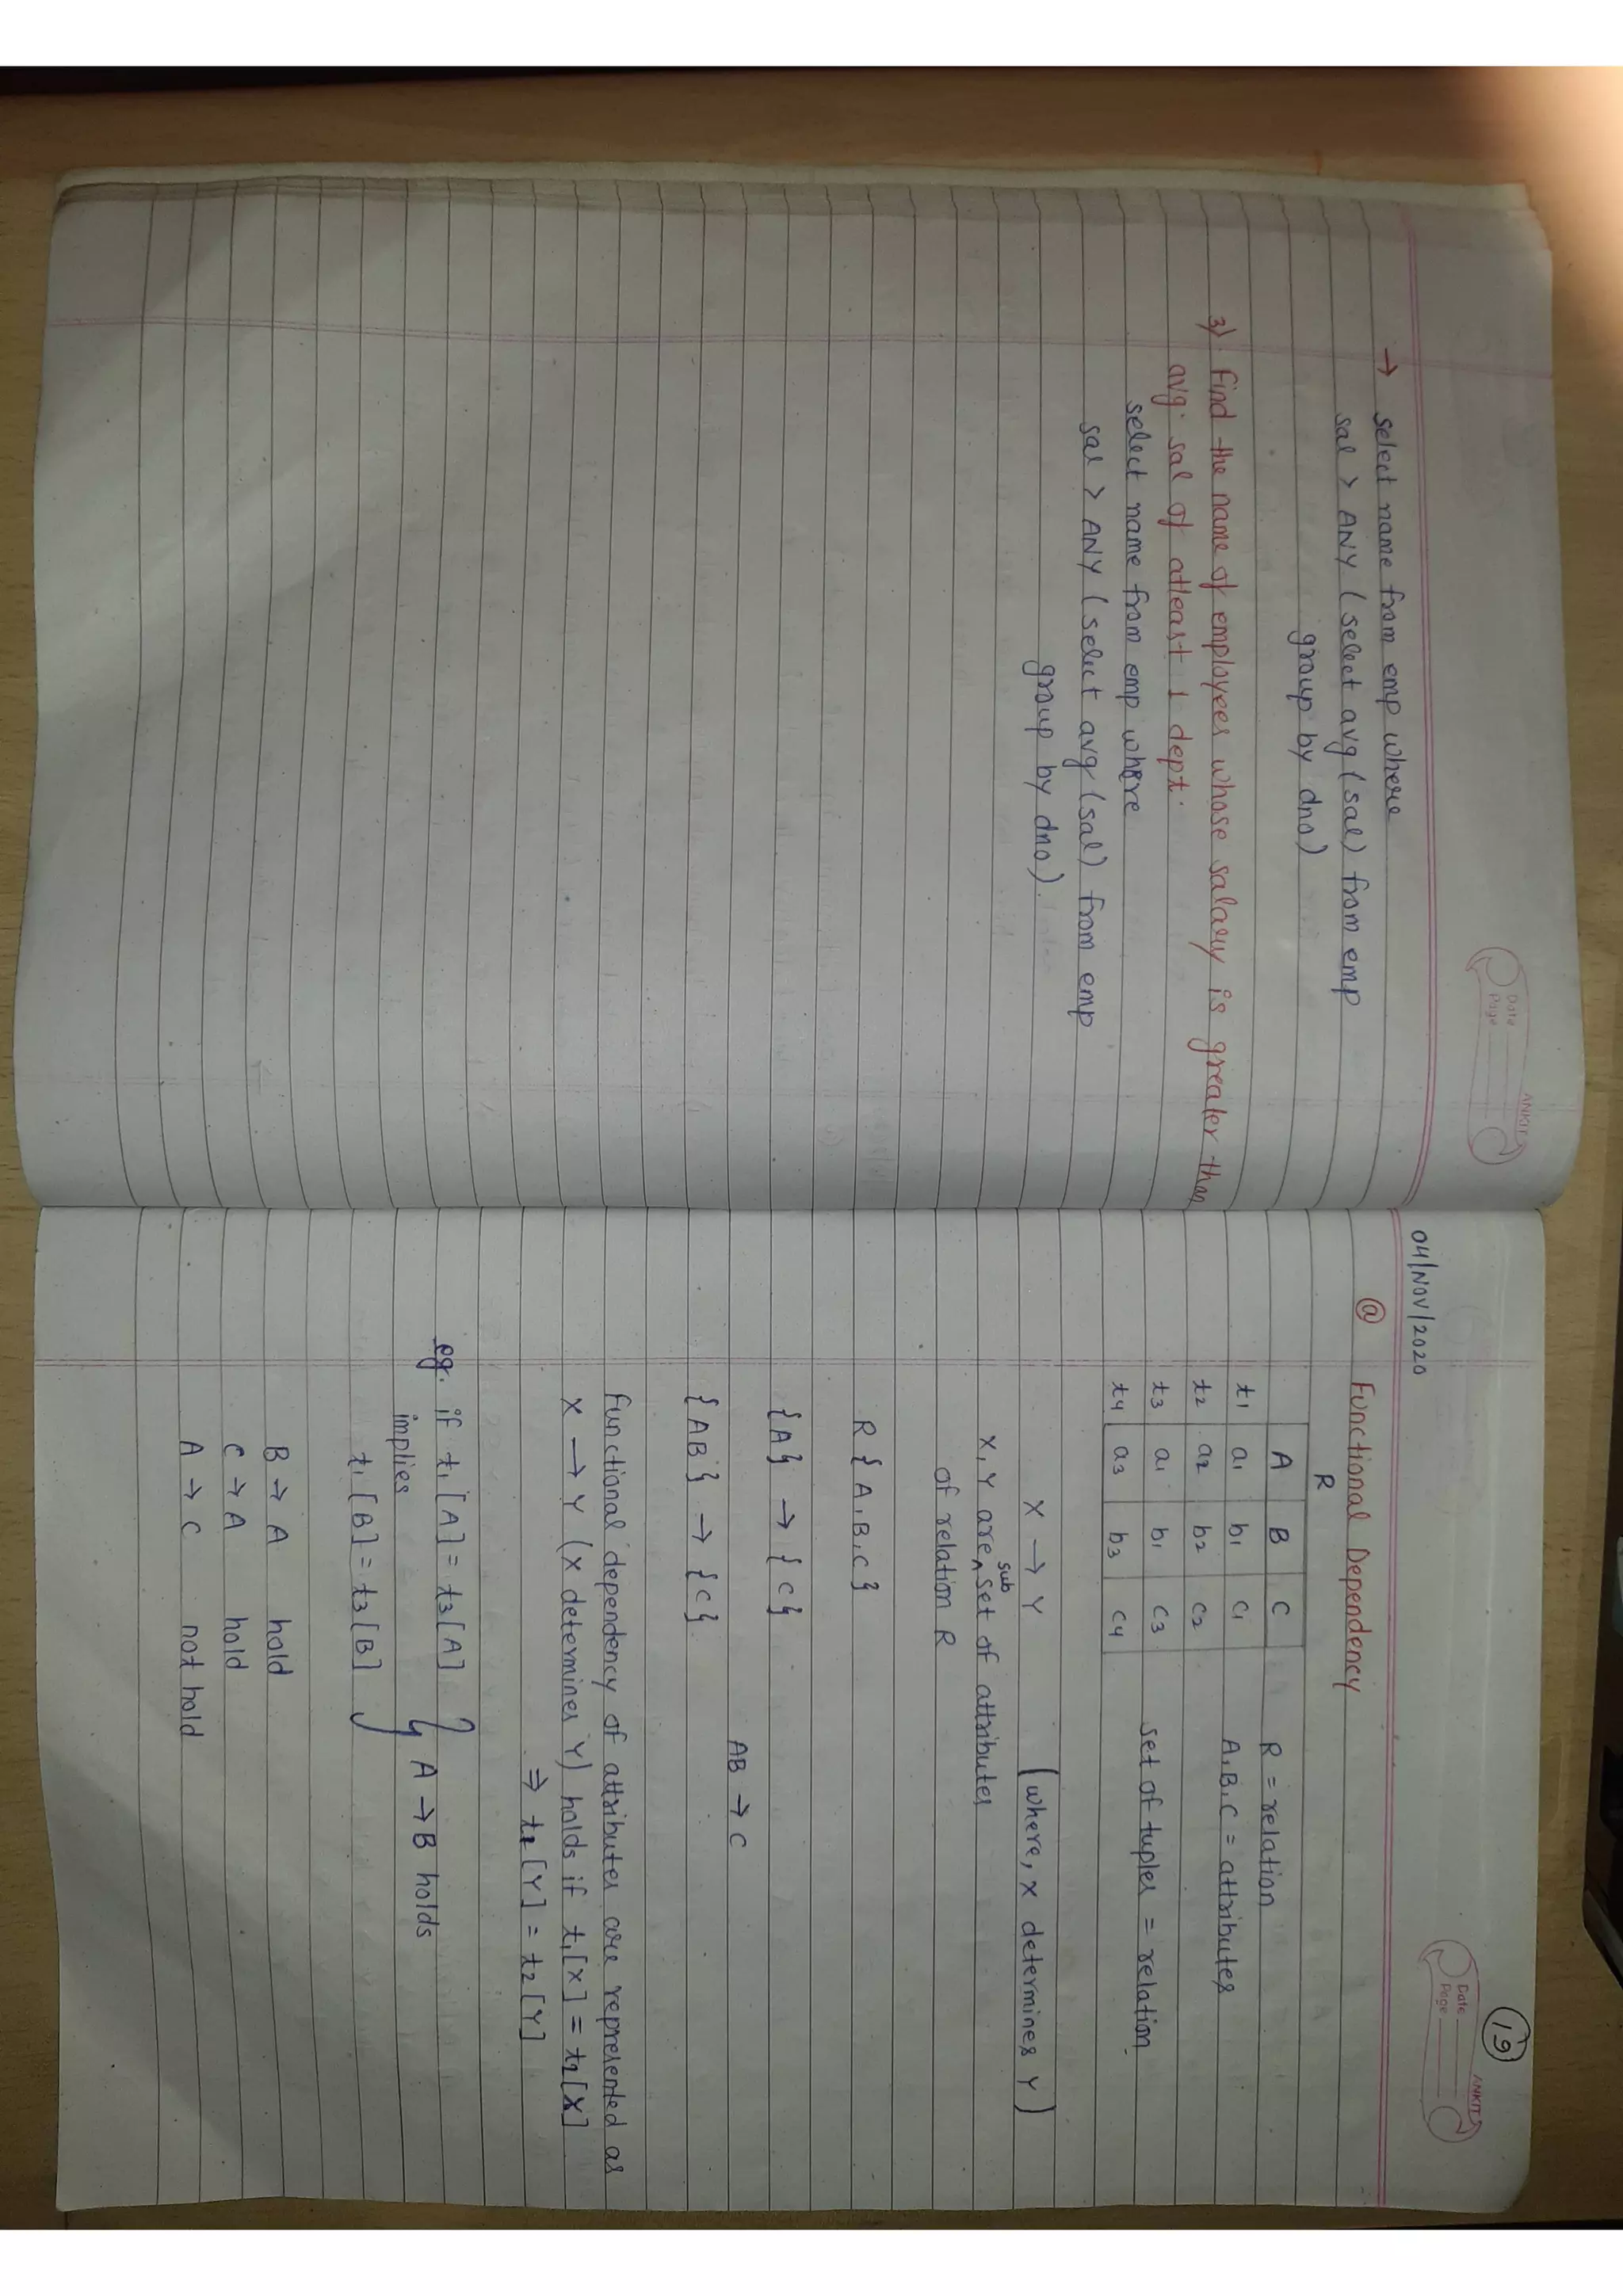 Date
Page
ANKIT
→ select name from emp where
sal > ANY (select avg(sal) from emp
group by dno)
3) Find the name of employees whose salary is greater than
avg. sal of atleast 1 dept.
select name from emp where
sal > ANY (select avg(sal) from emp
group by dno).
19
04/NOV/2020
Date
Page
ANKIT
@ Functional Dependency
R
R = relation
A B C
A,B,C = attributes
t1 a1 b1 c1
t2 a2 b2 c2
set of tuples = relation
t3 a1 b1 c3
t4 a3 b3 c4
X → Y (where, X determines Y)
X,Y are sub set of attributes
of relation R
R {A,B,C}
{A} → {C}
AB → C
{AB} → {C}
Functional dependency of attributes are represented as
X → Y (X determines Y) holds if t1[X] = t2[X]
⇒ t1[Y] = t2[Y]
eg. if t1[A] = t3[A]
implies } A → B holds
t1[B] = t3[B]
B → A hold
C → A hold
A → C not hold